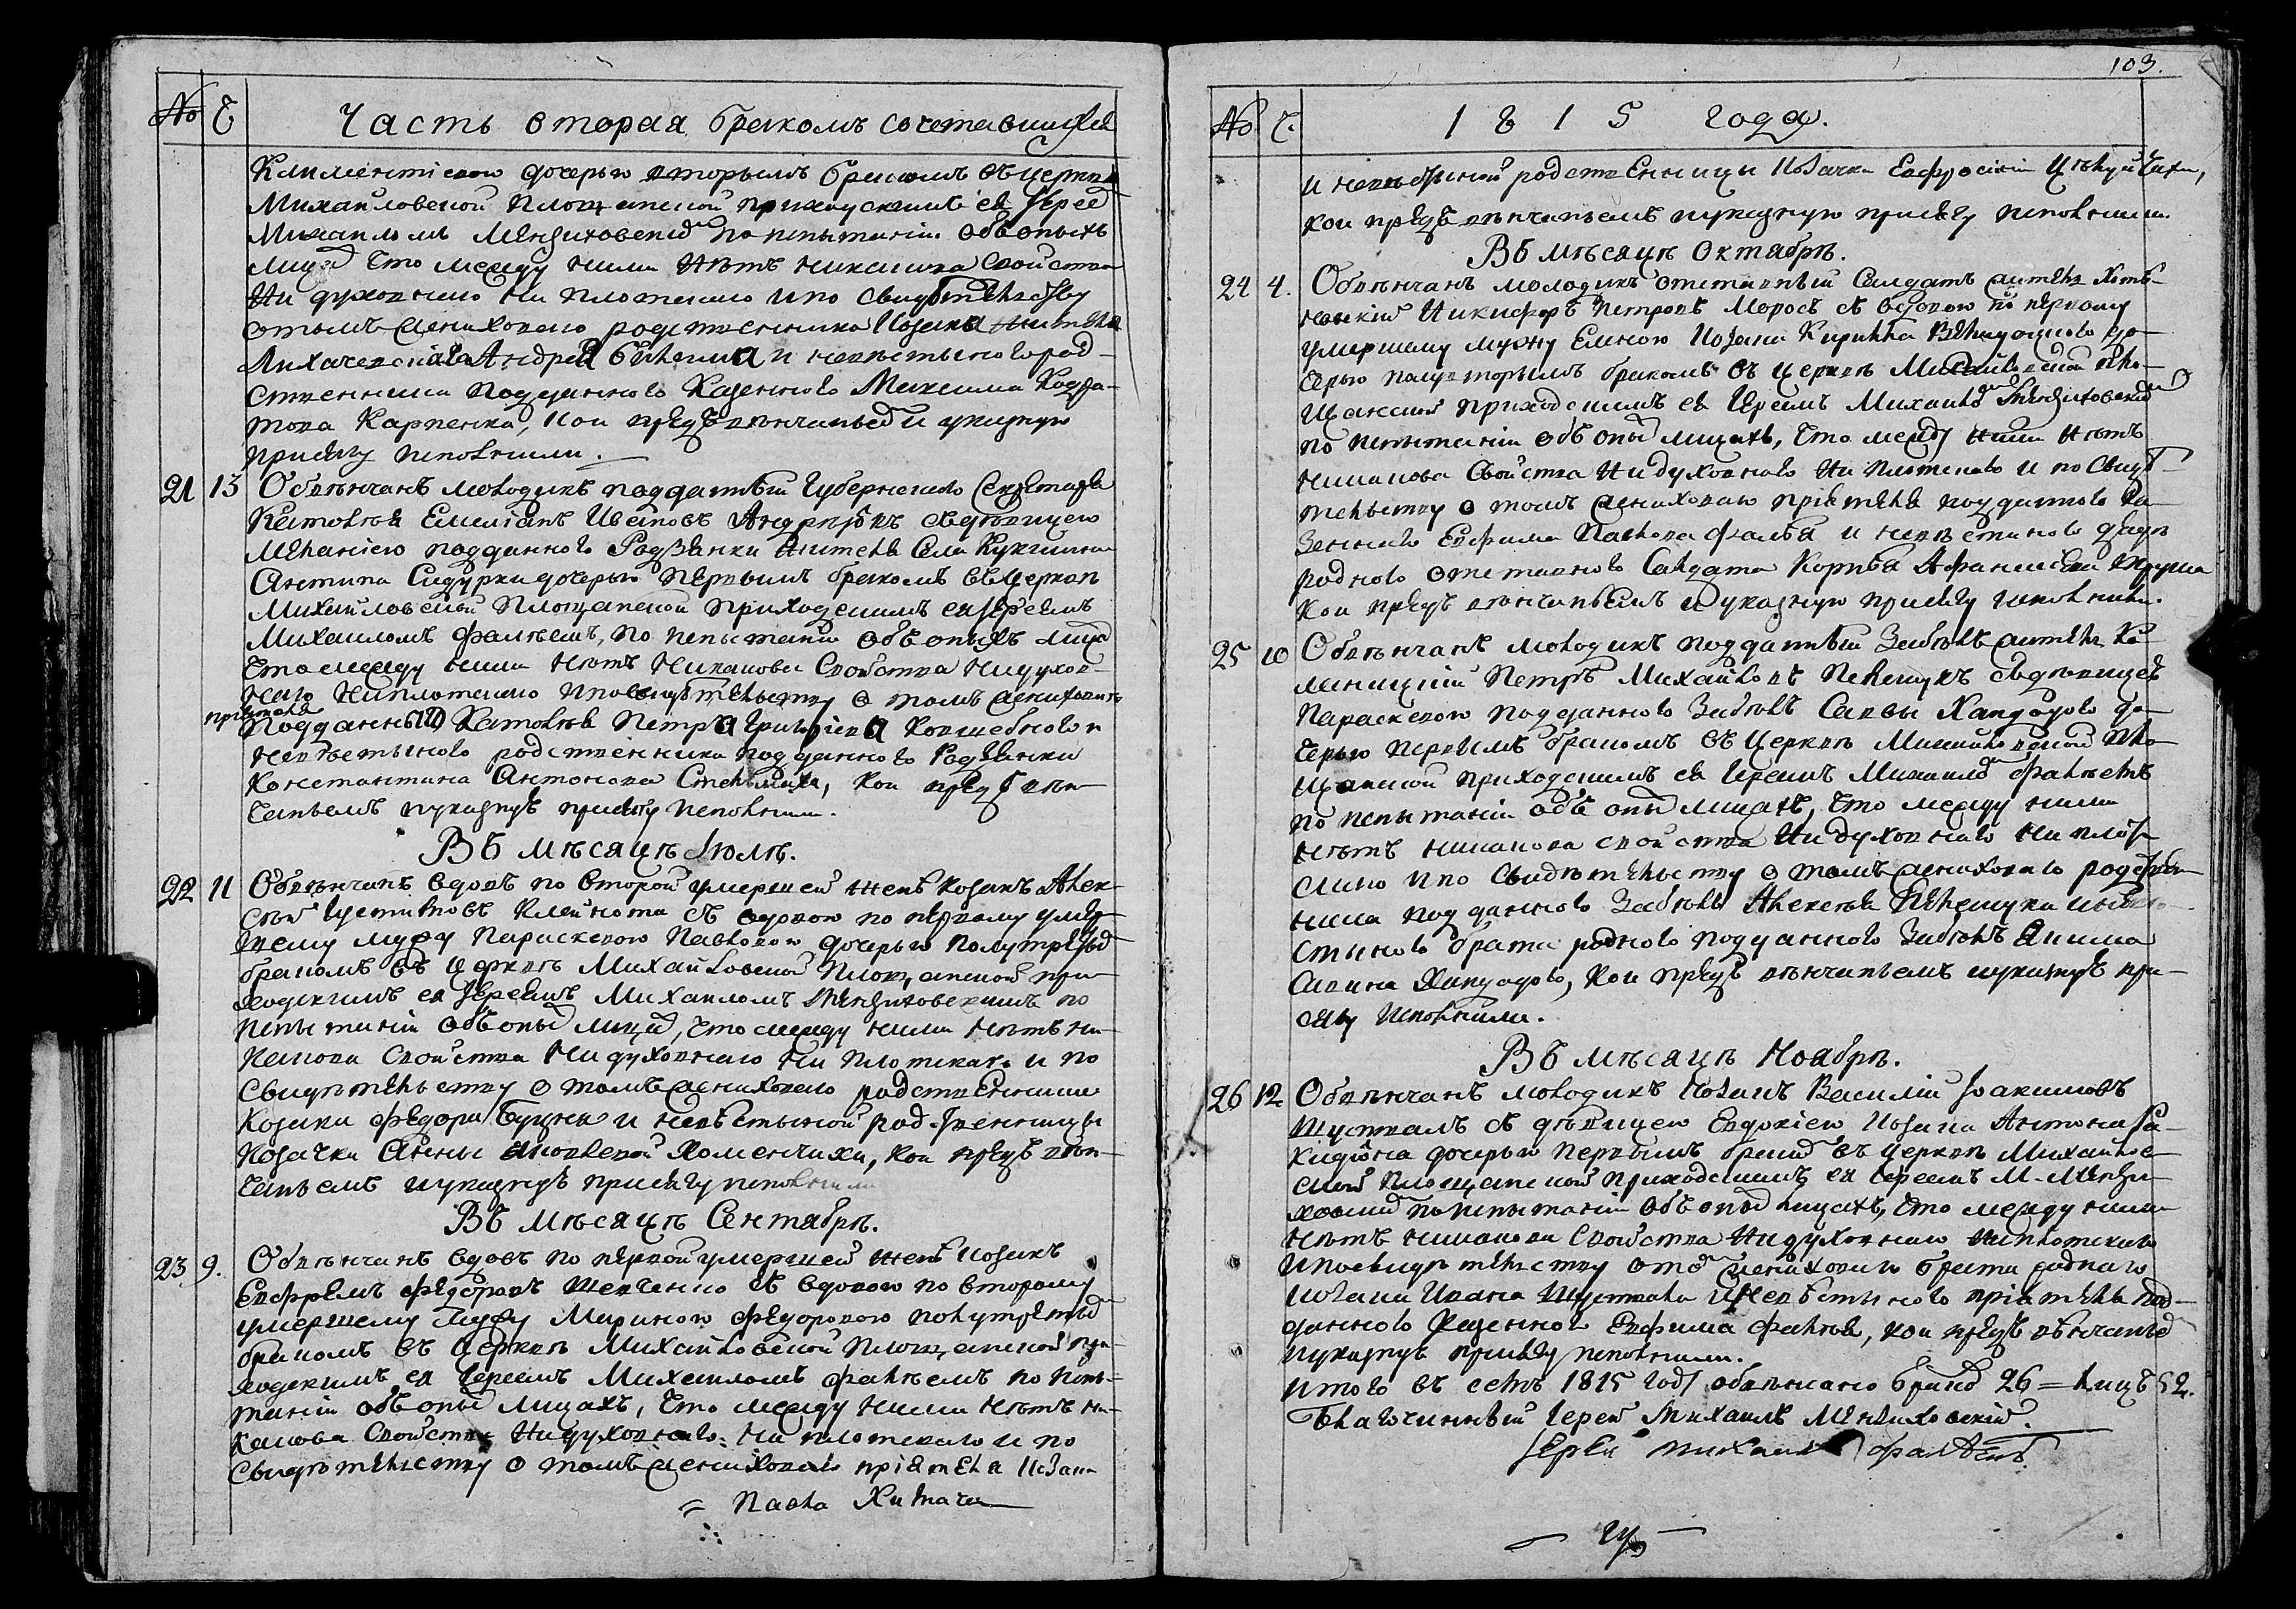 № Ч Часть вторая бракомъ сочетавшихся
Климентіевою дочерью вторымъ бракомъ въ церкви
Михайловской Площанской приходскимъ ея Іерее
Михаиломъ Менжиховски по испытаніи объ оныхъ
лица что между ними нѣтъ никакова свойства
ни духовнаго ни плотскаго и по свидѣтельству
отомъ жениховаго родственника козака жителя
Лихачевскаго Андрея и невѣстынаго род-
ственника подданнаго Казеннаго Максима Кодра-
това Карпенка, кои предъ вѣнчанье и указную
присягу исполнили.
21 13 Обвѣнчанъ молодикъ подданный Губернского Секретаря
Емиліанъ Ивановъ съ дѣвицею
Меланіею подданного Родзянки жителя Села
Антипа Сидурки дочерью первымъ бракомъ въ Церкви
Михайловской Площанской приходскимъ ея Іереемъ
Михаиломъ Фалѣемъ, по испытаніи объ оныхъ лица
что между ними нѣтъ никакова свойства ни духов-
наго ни плотскаго и по свидѣтельству о томъ женихового
пріятеля
Подданны Петра Григоріева и
невѣстынаго родственника подданного Родзянки
Константина Антонова, кои предъ вѣн-
чаньемъ и указную присягу исполнили.
Въ мѣсяцѣ Іюлѣ.
22 11 Обвѣнчанъ вдовъ по второй умершей женѣ козакъ Алек-
сѣй Устимовъ Клейнота съ вдовою по первому умер-
шему мужу Параскевою Павловою дочерью полутреть
бракомъ въ Церкви Михайловской Площанской при-
ходскимъ ея Іереемъ Михаиломъ Менжиховскимъ по
испытаніи объ оны лица, что между ними нѣтъ ни-
какова свойства ни духовнаго ни плотскаго и по
свидѣтельству о томъ жениховаго родственника
козака Федора Буцня и невѣстыной родственницы
козачки Анны Яковлевой Хоменчихи, кои предъ вѣн-
чаньемъ и указную присягу исполнили
Въ мѣсяцѣ Сентябрѣ.
23 9. Обвѣнчанъ вдовъ по первой умершей женѣ козакъ
Евфремъ Федоровъ Шевченко съ вдовою по второму
умершему мужу Мариною Федоровою полутреть
бракомъ въ Церкви Михайловской Площанской при-
ходскимъ ея Іереемъ Михаиломъ Фалѣемъ по испы-
таніи объ оны лицахъ, что между ними нѣтъ ни-
какова свойства ни духовнаго ни плотскаго и по
свидѣтельству о томъ жениховаго пріятеля козака
= Павла Химача
103.
№ Ч. 1815 года.
и невѣстыной родственницы козачки Евфросиніи
кои предъ вѣнчаньемъ и указную присягу исполнили.
Въ мѣсяцѣ Октябрѣ.
24 4. Обвѣнчанъ молодикъ отставный Салдатъ житель
Никифоръ Петровъ Моросъ съ вдовою по первому
умершему мужу Еленою козака Кирила до-
черью полувторымъ бракомъ въ церкви Михайловской Пло-
щанской приходскимъ ея Іереемъ Михаило Менжиховски
по испытаніи объ оны лицахъ, что между ними нѣтъ
никакова свойства ни духовнаго ни плотскаго и по свидѣ-
тельству о томъ жениховаго пріятеля подданного Ка-
зеннаго Евфима Павлова Фалѣя и невѣстиного дяди
родного отставного Салдата Корнѣя Афанасіева
кои предъ вѣнчаньемъ и указную присягу исполнили.
25 10 Обвѣнчанъ молодикъ подданный житель Ка-
меницкій Петръ Михайловъ съ дѣвицею
Параскевою подданного Савы до-
черью первымъ бракомъ въ Церкви Михайловской Пло-
щанской приходскимъ ея Іереемъ Михаило Фалѣемъ
по испытаніи объ оны лицахъ, что между ними
нѣтъ никакова свойства ни духовнаго ни плот-
скаго и по свидѣтельству о томъ жениховаго родствен-
ника подданного Алексѣя и невѣ-
стиного брата родного подданного Якима
Савина, кои предъ вѣнчаньемъ и указную при-
сягу исполнили.
Въ мѣсяцѣ Ноябрѣ.
26 12 Обвѣнчанъ молодикъ козакъ Василій Іоакимовъ
Шустваль съ дѣвицею Евдокіею козака Антона
дочерью первымъ брако въ церкви Михайлов-
ской Площанской приходскимъ ея Іереемъ М. Менжи-
ховски по испытаніи объ оны лицахъ, что между ними
нѣтъ никакова свойства ни духовнаго ни плотскаго
и по свидѣтельству отомъ жениховаго брата родного
козака Ивана Шуствала и невѣстиного пріятеля под-
данного Казенного Евфима Фалѣя, кои предъ вѣнчанье
и указную присягу исполнили.
Итого въ семъ 1815 году обвѣнчано брако 26 = Лицъ 52.
Благочинный Іерей Михаилъ Менжиховскій.
Іерей Михаилъ Фалѣевъ.